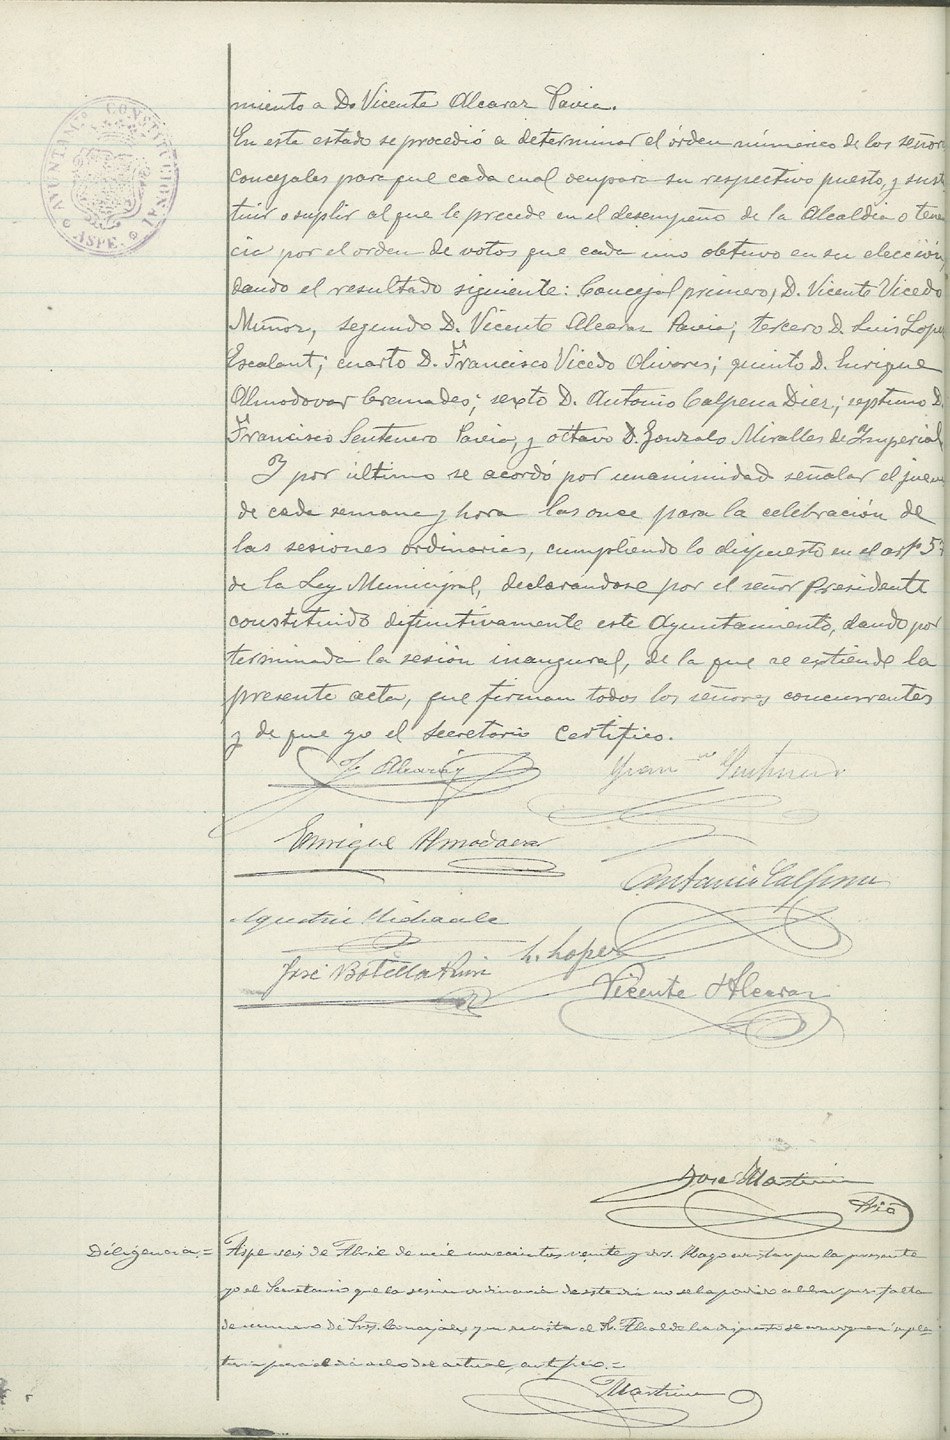 AYUNTAM.TO CONSTITUCIONAL
ASPE.
miento a Dn Vicente Alcaraz Pavia.
En este estado se procedió a determinar el órden númerico de los señor
concejales para que cada cual ocupara su respectivo puesto, y susti
tuir o suplir al que le precede en el desempeño de la Alcaldia o tenen
cia por el orden de votos que cada uno obtuvo en su elección
dando el resultado siguiente: Concejal primero, D. Vicente Vicedo
Muñoz, segundo D. Vicente Alcaraz Pavia; tercero D. Luis Lopez
Escalant; cuarto D. Francisco Vicedo Olivares; quinto D. Enrique
Almodovar Cremades; sexto D. Antonio Calpena Diez; septimo D.
Francisco Sentenero Pavia, y octavo D. Gonzalo Miralles de Imperial
Y por último se acordó por unanimidad señalar el jueves
de cada semana y hora las once para la celebración de
las sesiones ordinarias, cumpliendo lo dispuesto en el artº 57
de la Ley Municipal, declarándose por el señor Presidente
constituido difinitivamente este Ayuntamiento, dando por
terminada la sesión inaugural, de la que se extiende la
presente acta, que firman todos los señores concurrentes
y de que yo el secretario certifico.
Alcaraz
Franco Sentenero
Enrique Almodovar
Antonio Calpena
Agustin
L. Lopez
José Botella
Vicente Alcaraz
Jose Martinez
Srio
Diligencia.= Aspe seis de Abril de mil novecientos veinte y dos. Hago constar por la presente
yo el Secretario que la sesion ordinaria de este dia no se ha podido celebrar por falta
de numero de Sres. Concejales y en su vista el Sr. Alcalde ha dispuesto se convoque a suple
toria para el dia ocho del actual, certifico.=
Martinez